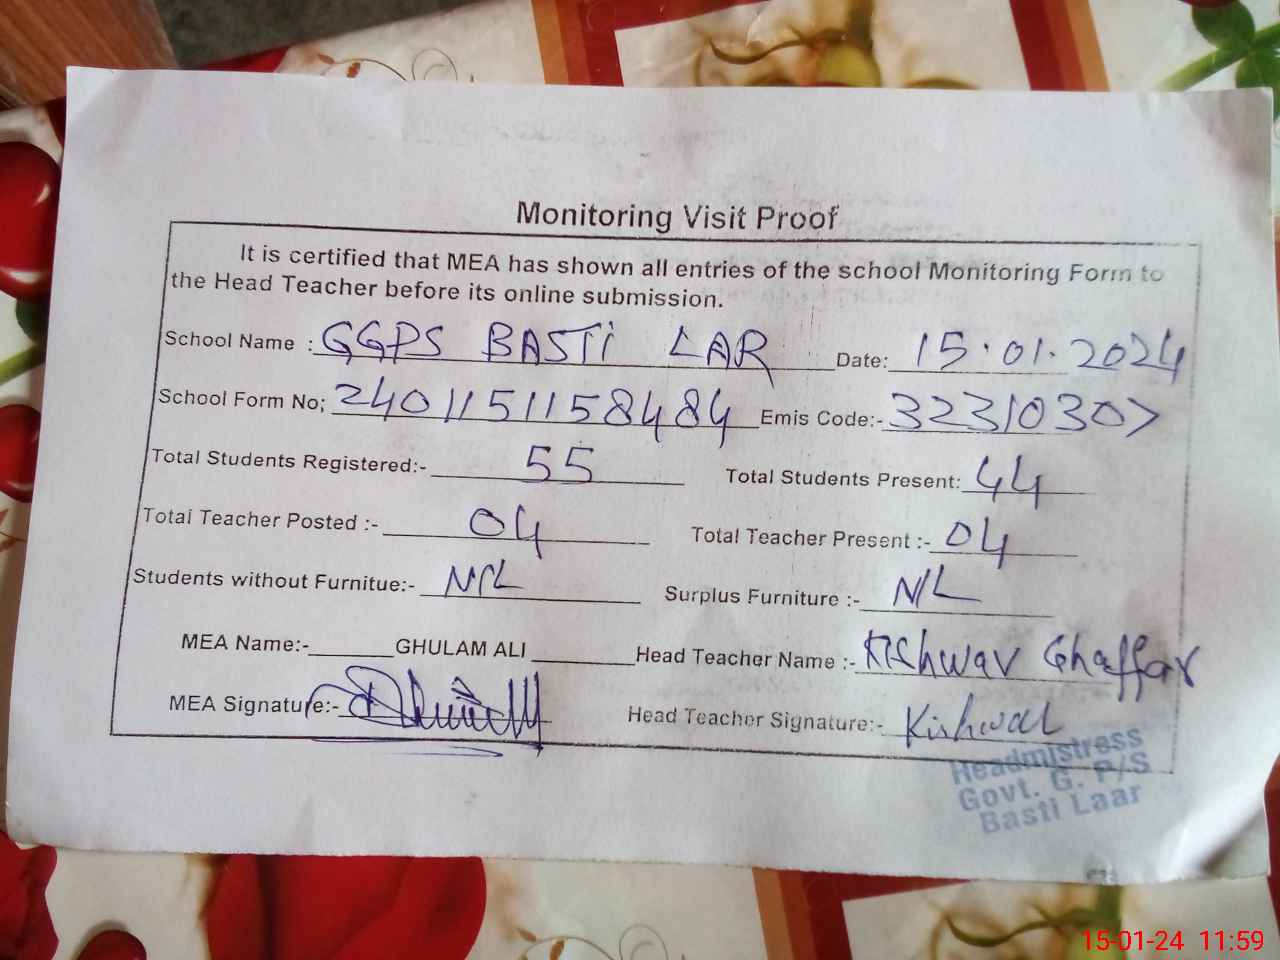 Monitoring Visit Proof
It is certified that MEA has shown all entries of the school Monitoring Form to
the Head Teacher before its online submission.
School Name : GGPS BASTI LAR Date: 15.01.2024
School Form No; 2401151158484 Emis Code:- 32310307
Total Students Registered:- 55 Total Students Present: 44
Total Teacher Posted :- 04 Total Teacher Present :- 04
Students without Furnitue:- NIL Surplus Furniture :- NIL
MEA Name:- GHULAM ALI Head Teacher Name :- Kishwar Ghaffar
MEA Signature:- Head Teacher Signature:- Kishwar
Headmistress
Govt. G. P/S
Basti Laar
15-01-24 11:59